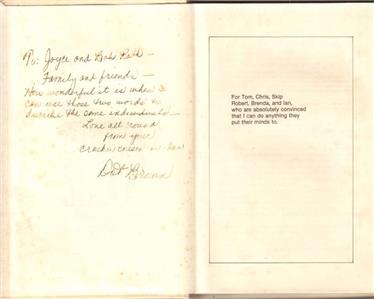 To: Joyce and Bob
Family and friends —
How wonderful it is when I
can use those two words to
describe the same individuals —
Love all around
from your
For Tom, Chris, Skip
Robert, Brenda, and Ian,
who are absolutely convinced
that I can do anything they
put their minds to.